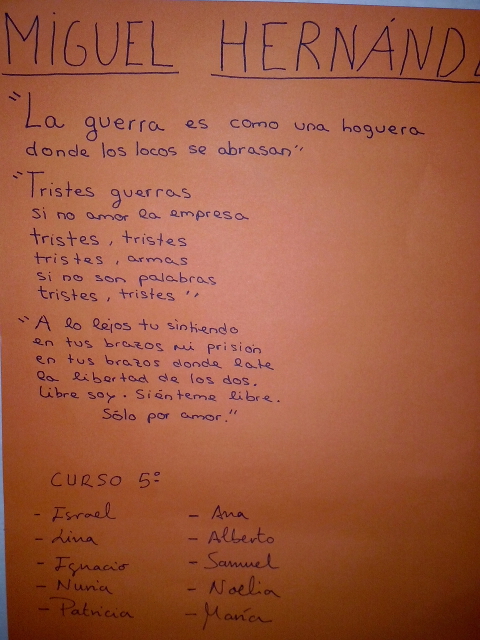 MIGUEL HERNÁND
"La guerra es como una hoguera
donde los locos se abrasan"
"Tristes guerras
si no amor la empresa
tristes, tristes
tristes, armas
si no son palabras
tristes, tristes"
"A lo lejos tu sintiendo
en tus brazos mi prisión
en tus brazos donde late
la libertad de los dos.
Libre soy. Siénteme libre.
Sólo por amor."
CURSO 5º
- Israel - Ana
- Lina - Alberto
- Ignacio - Samuel
- Nuria - Noelia
- Patricia - María